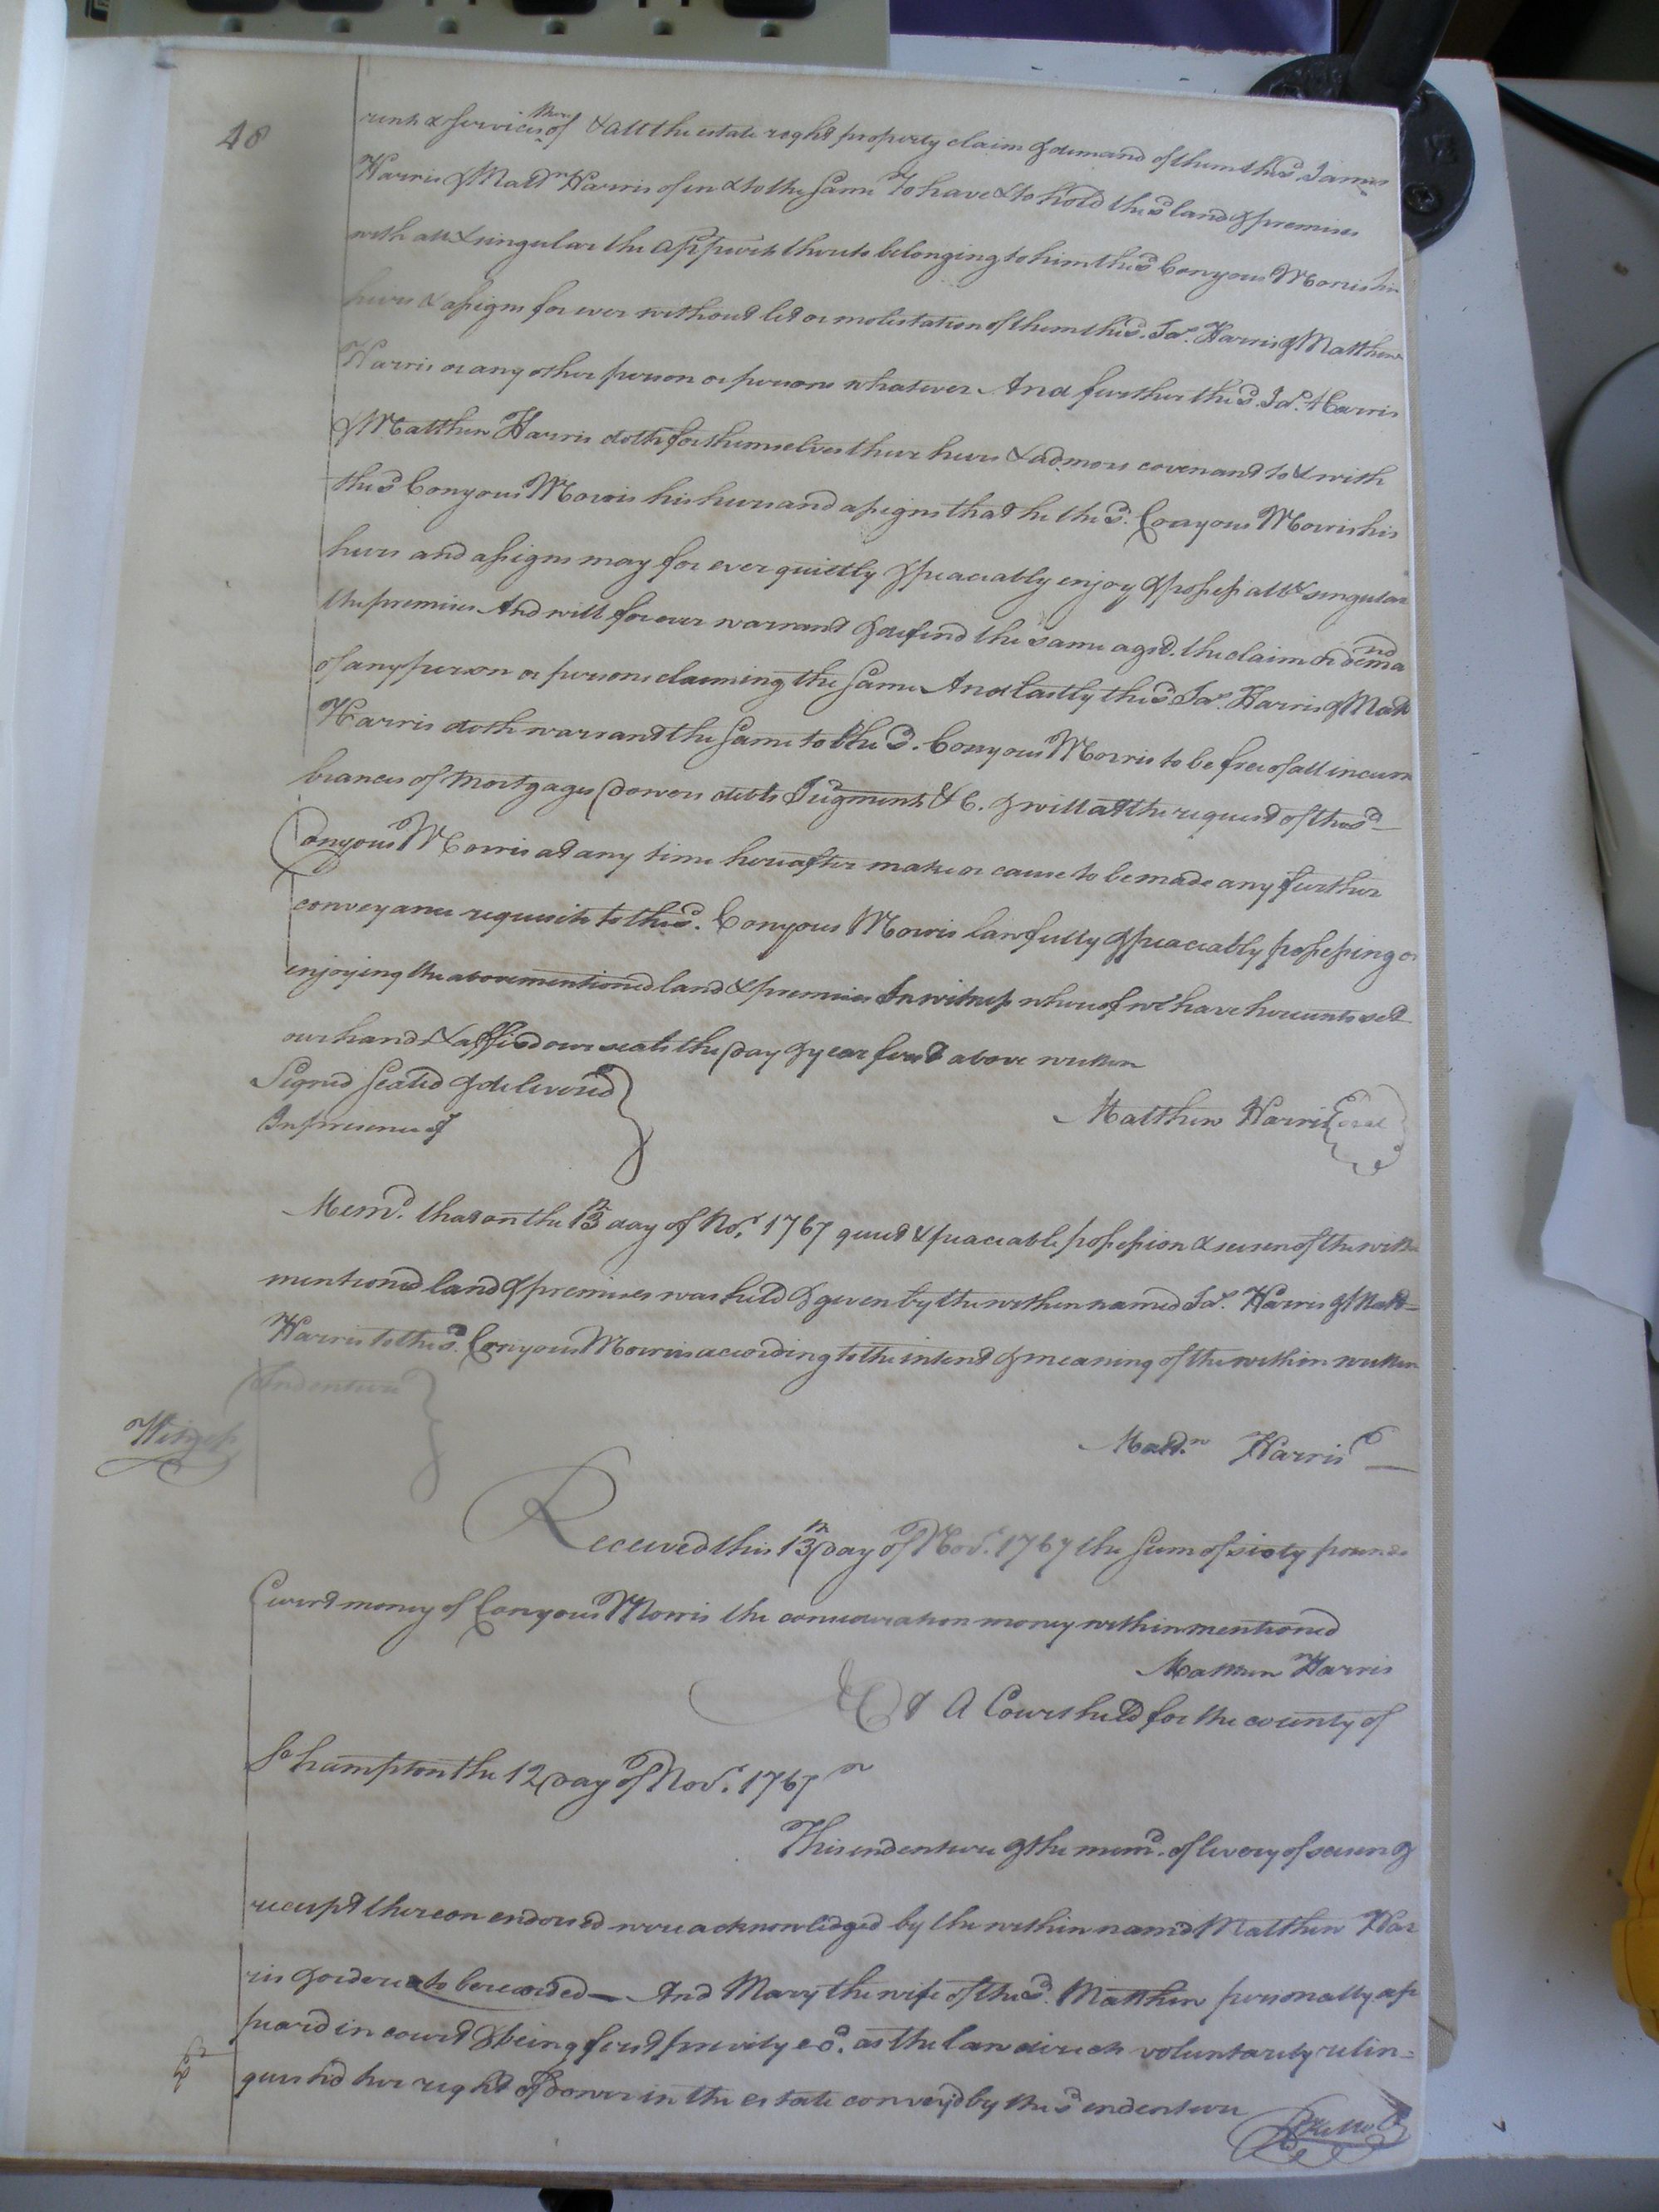 48
rents & services ther of & all the estate reght property claim & demand of them the sd. James
Harris & Mattw Harris of in & to the same To have & to hold the sd land & premises
with all & singular the appurts thereto belonging to him the sd Conyous Morris his
heirs & assigns for ever without let or molistation of them the sd. Jas. Harris & Matthew
Harris or any other person or persons whatever And further the sd. Jas. Harris
& Matthew Harris doth for themselves their heirs & admors covenant to & with
the sd Conyous Morris his heirs and assigns that he the sd. Conyous Morris his
heirs and assigns may for ever quietly & peaceably enjoy & possess all & singular
the premises And will for ever warrant & defend the same agst. the claim or demand
of any person or persons claiming the same And lastly the sd Jas. Harris & Matt
Harris doth warrant the same to the sd. Conyous Morris to be free of all incum
brances of mortgages dowers debts Judgments &c. & will at the request of the sd
Conyous Morris at any time hereafter make or cause to be made any further
conveyance requisite to the sd. Conyous Morris lawfully & peaceably possessing or
enjoying the above mentioned land & premises In witness whereof we have hereunto set
our hands & affixd our seals the day & year first above written
Signed sealed & delivered
In presence of
Matthew Harris Seal
Memd. that on the 13 day of Nov. 1767 quiet & peaceable possession & seisen of the within
mentioned land & premises was held & given by the within named Jas. Harris & Matt
Harris to the sd. Conyous Morris according to the intent & meaning of the within written
Indenture
Witness
Mattw. Harris
Received this 13 day of Novr. 1767 the sum of sixty pounds
Currt money of Conyous Morris the consideration money within mentioned
Matthew Harris
At A Court held for the county of
So hampton the 12 day of Novr. 1767
This indenture & the memd. of livery of seisen &
receipt thereon endorsed were acknowledged by the within named Matthew Har
ris & ordered to be recorded — And Mary the wife of the sd. Matthew personally ap
peard in court & being first privily ed. as the law directs voluntarily relin=
quishd her right of dower in the estate conveyd by the sd endenture